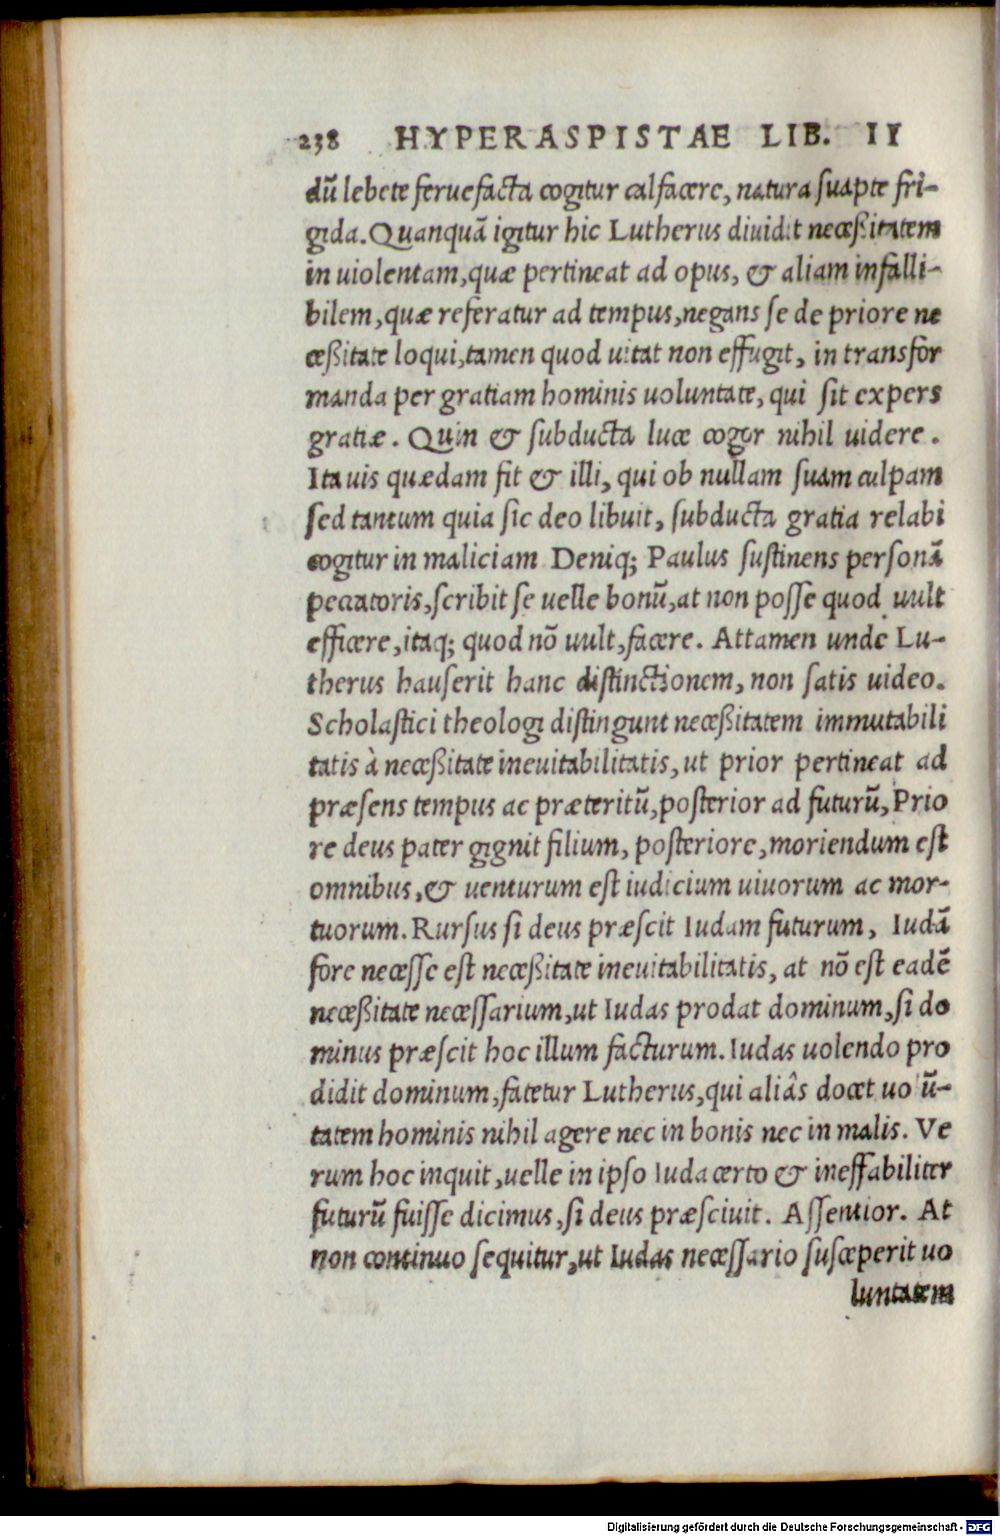 238 HYPERASPISTAE LIB. II
dū lebete feruefacta cogitur calfacere, natura suapte fri-
gida. Quanquā igitur hic Lutherus diuidit necessitatem
in uiolentam, quæ pertineat ad opus, & aliam infalli-
bilem, quæ referatur ad tempus, negans se de priore ne
ceßitate loqui, tamen quod uitat non effugit, in transfor
manda per gratiam hominis uoluntate, qui sit expers
gratiæ. Quin & subducta luce cogor nihil uidere.
Ita uis quædam fit & illi, qui ob nullam suam culpam
sed tantum quia sic deo libuit, subducta gratia relabi
cogitur in maliciam Deniq; Paulus sustinens personā
peccatoris, scribit se uelle bonū, at non posse quod uult
efficere, itaq; quod nō uult, facere. Attamen unde Lu-
therus hauserit hanc distinctionem, non satis uideo.
Scholastici theologi distingunt neceßitatem immutabili
tatis à neceßitate ineuitabilitatis, ut prior pertineat ad
præsens tempus ac præteritū, posterior ad futurū, Prio
re deus pater gignit filium, posteriore, moriendum est
omnibus, & uenturum est iudicium uiuorum ac mor-
tuorum. Rursus si deus præscit Iudam futurum, Iudā
fore necesse est neceßitate ineuitabilitatis, at nō est eadē
neceßitate necessarium, ut Iudas prodat dominum, si do
minus præscit hoc illum facturum. Iudas uolendo pro
didit dominum, fatetur Lutherus, qui aliâs docet uo ū-
tatem hominis nihil agere nec in bonis nec in malis. Ve
rum hoc inquit, uelle in ipso Iuda certo & ineffabiliter
futurū fuisse dicimus, si deus præsciuit. Assentior. At
non continuo sequitur, ut Iudas necessario susceperit uo
luntatem
Digitalisierung gefördert durch die Deutsche Forschungsgemeinschaft - DFG